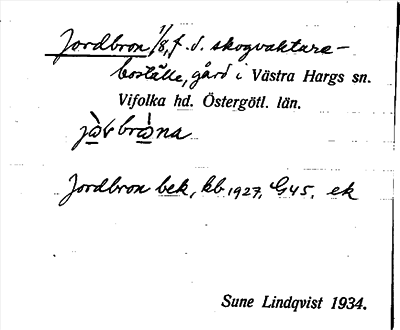 Jordbron 1/8, f. d. skogvaktare-
boställe, gård i Västra Hargs sn.
Vifolka hd. Östergötl. län.
bròna
Jordbron bek, kb 1927, G45. ek
Sune Lindqvist 1934.